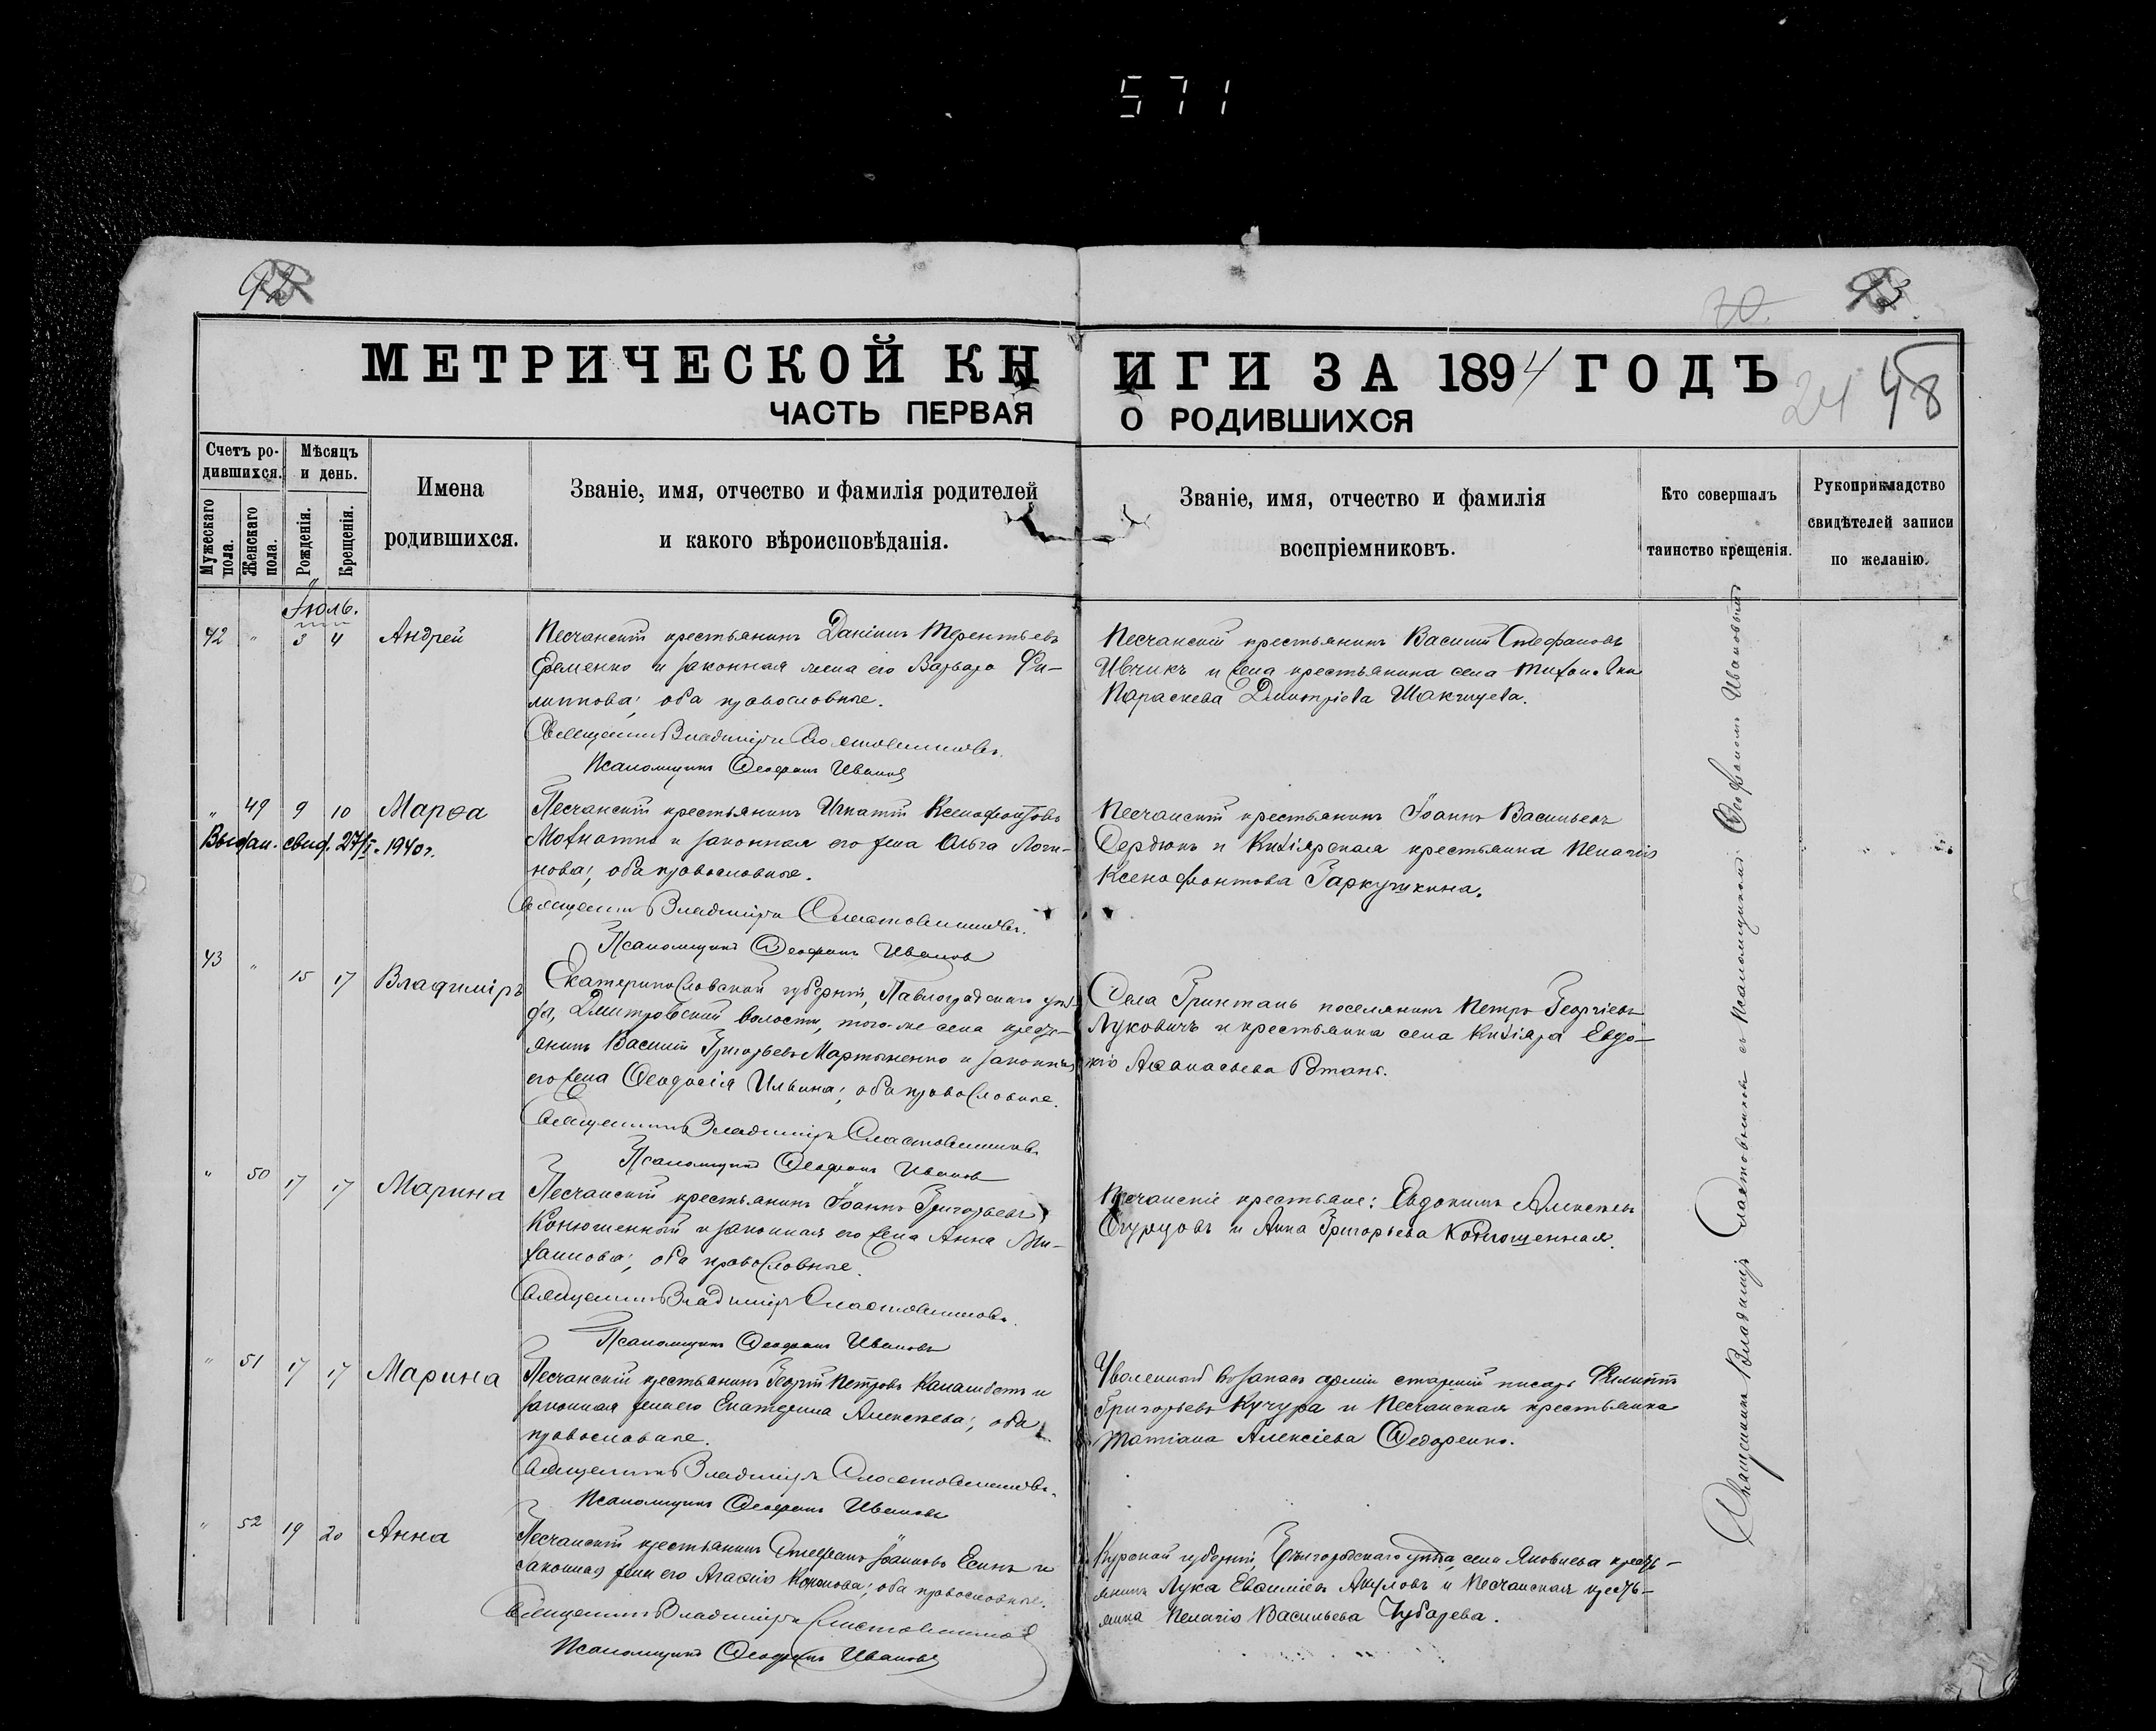 571
92
70.
93
МЕТРИЧЕСКОЙ КНИГИ ЗА 1894 ГОДЪ
24 48
ЧАСТЬ ПЕРВАЯ О РОДИВШИХСЯ
Счетъ родившихся.
Мужескаго пола.
Женскаго пола.
Мѣсяцъ и день.
Рожденія.
Крещенія.
Имена родившихся.
Званіе, имя, отчество и фамилія родителей
и какого вѣроисповѣданія.
Званіе, имя, отчество и фамилія
воспріемниковъ.
Кто совершалъ
таинство крещенія.
Рукоприкладство
свидѣтелей записи
по желанію.
Іюль.
42 " 3 4 Андрей
Песчанскій крестьянинъ Даніилъ Терентьевъ
Еременко и законная жена его Варвара Фи-
липпова; оба православные.
Священникъ Владиміръ Сластовниковъ.
Псаломщикъ Ѳеофанъ Ивановъ
Песчанскій крестьянинъ Василій Стефановъ
Ивчикъ и жена крестьянина села
Параскева Димитріева
" 49 9 10 Марѳа
Выдан. свид. 27/I. 1940 г.
Песчанскій крестьянинъ Игнатій Ксенофонтовъ
Мохнатко и законная его жена Ольга Логи-
нова; оба православные.
Священникъ Владиміръ Сластовниковъ.
Псаломщикъ Ѳеофанъ Ивановъ
Песчанскій крестьянинъ Іоаннъ Васильевъ
Сердюкъ и Кизіярская крестьянка Пелагія
Ксенофонтова
43 " 15 17 Владиміръ
Екатеринославской губерніи, Павлоградскаго уѣз-
да, Дмитровской волости, того-же села кресть-
янинъ Василій Григорьевъ Мартыненко и законная
его жена Ѳеодосія Ильина; оба православные.
Священникъ Владиміръ Сластовниковъ
Псаломщикъ Ѳеофанъ Ивановъ
Села поселянинъ Петръ Георгіевъ
Луковичъ и крестьянка села Кизіяра Евдо-
кія Аѳанасьева
" 50 17 17 Марина
Песчанскій крестьянинъ Іоаннъ Григорьевъ
Конюшенный и законная его жена Анна Ми-
хаилова; оба православные.
Священникъ Владиміръ Сластовниковъ.
Псаломщикъ Ѳеофанъ Ивановъ
Песчанскіе крестьяне: Евдокимъ Алексѣевъ
Огурцовъ и Анна Григорьева Конюшенная.
" 51 17 17 Марина
Песчанскій крестьянинъ Георгій Петровъ и
законная жена его Екатерина Алексѣева; оба
православные.
Священникъ Владиміръ Сластовниковъ.
Псаломщикъ Ѳеофанъ Ивановъ
Уволенный въ запасъ арміи старшій писарь Филиппъ
Григорьевъ Кучура и Песчанская крестьянка
Татіана Алексіева Ѳедоренко.
" 52 19 20 Анна
Песчанскій крестьянинъ Стефанъ Іоанновъ Есинъ и
законная жена его Агаѳія; оба православные.
Священникъ Владиміръ Сластовниковъ
Псаломщикъ Ѳеофанъ Ивановъ
Курской губерніи, уѣзда, села Яковлева кресть-
янинъ Лука Евѳиміевъ Акуловъ и Песчанская кресть-
янка Пелагія Васильева Чубарева.
Священникъ Владиміръ Сластовниковъ съ псаломщикомъ Ѳеофаномъ Ивановымъ